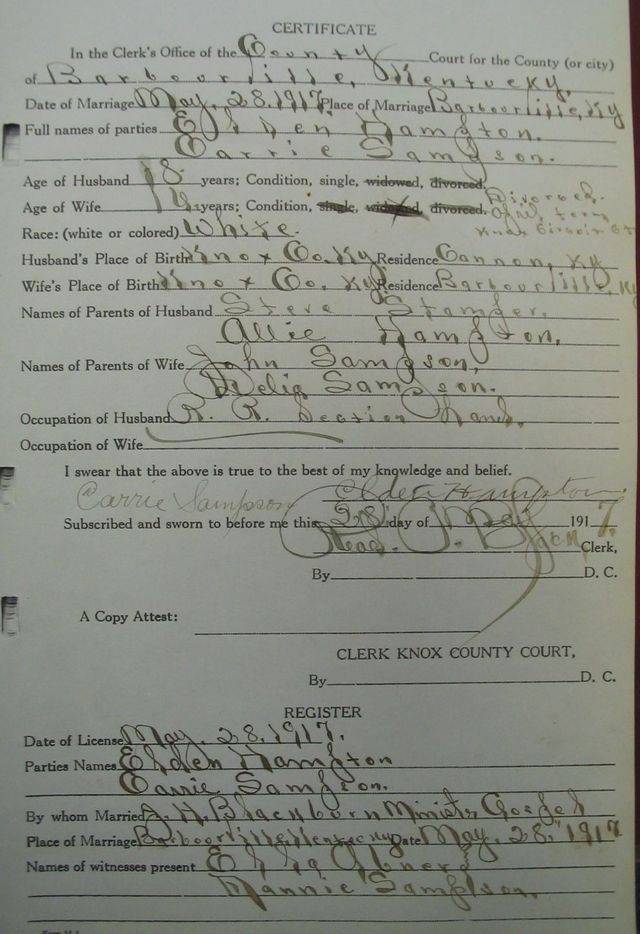 CERTIFICATE
In the Clerk's Office of the County Court for the County (or city)
of Barbourville, Kentucky,
Date of Marriage May, 28, 1917 Place of Marriage Barbourville, Ky
Full names of parties Elden Hampton.
Carrie Sampson.
Age of Husband 18 years; Condition, single, widowed, divorced.
Age of Wife years; Condition, single, widowed, divorced. Divorced.
Race: (white or colored) White. Knox Circuit
Husband's Place of Birth Knox Co. Ky Residence Cannon, Ky
Wife's Place of Birth Knox Co. Ky Residence Barbourville, Ky
Names of Parents of Husband Steve Stamper.
Allie Hampton,
Names of Parents of Wife John Sampson,
Delia Sampson.
Occupation of Husband R. R. Section Hand.
Occupation of Wife
I swear that the above is true to the best of my knowledge and belief.
Carrie Sampson Elden Hampton
Subscribed and sworn to before me this 28 day of May 1917.
Read. Clerk,
By D. C.
A Copy Attest:
CLERK KNOX COUNTY COURT,
By D. C.
REGISTER
Date of License May, 28, 1917.
Parties Names Elden Hampton
Carrie Sampson.
By whom Married J. H. Blackburn Minister Gospel
Place of Marriage Barbourville, Kentucky Date May, 28, 1917
Names of witnesses present Abner &
Mannie Sampson.